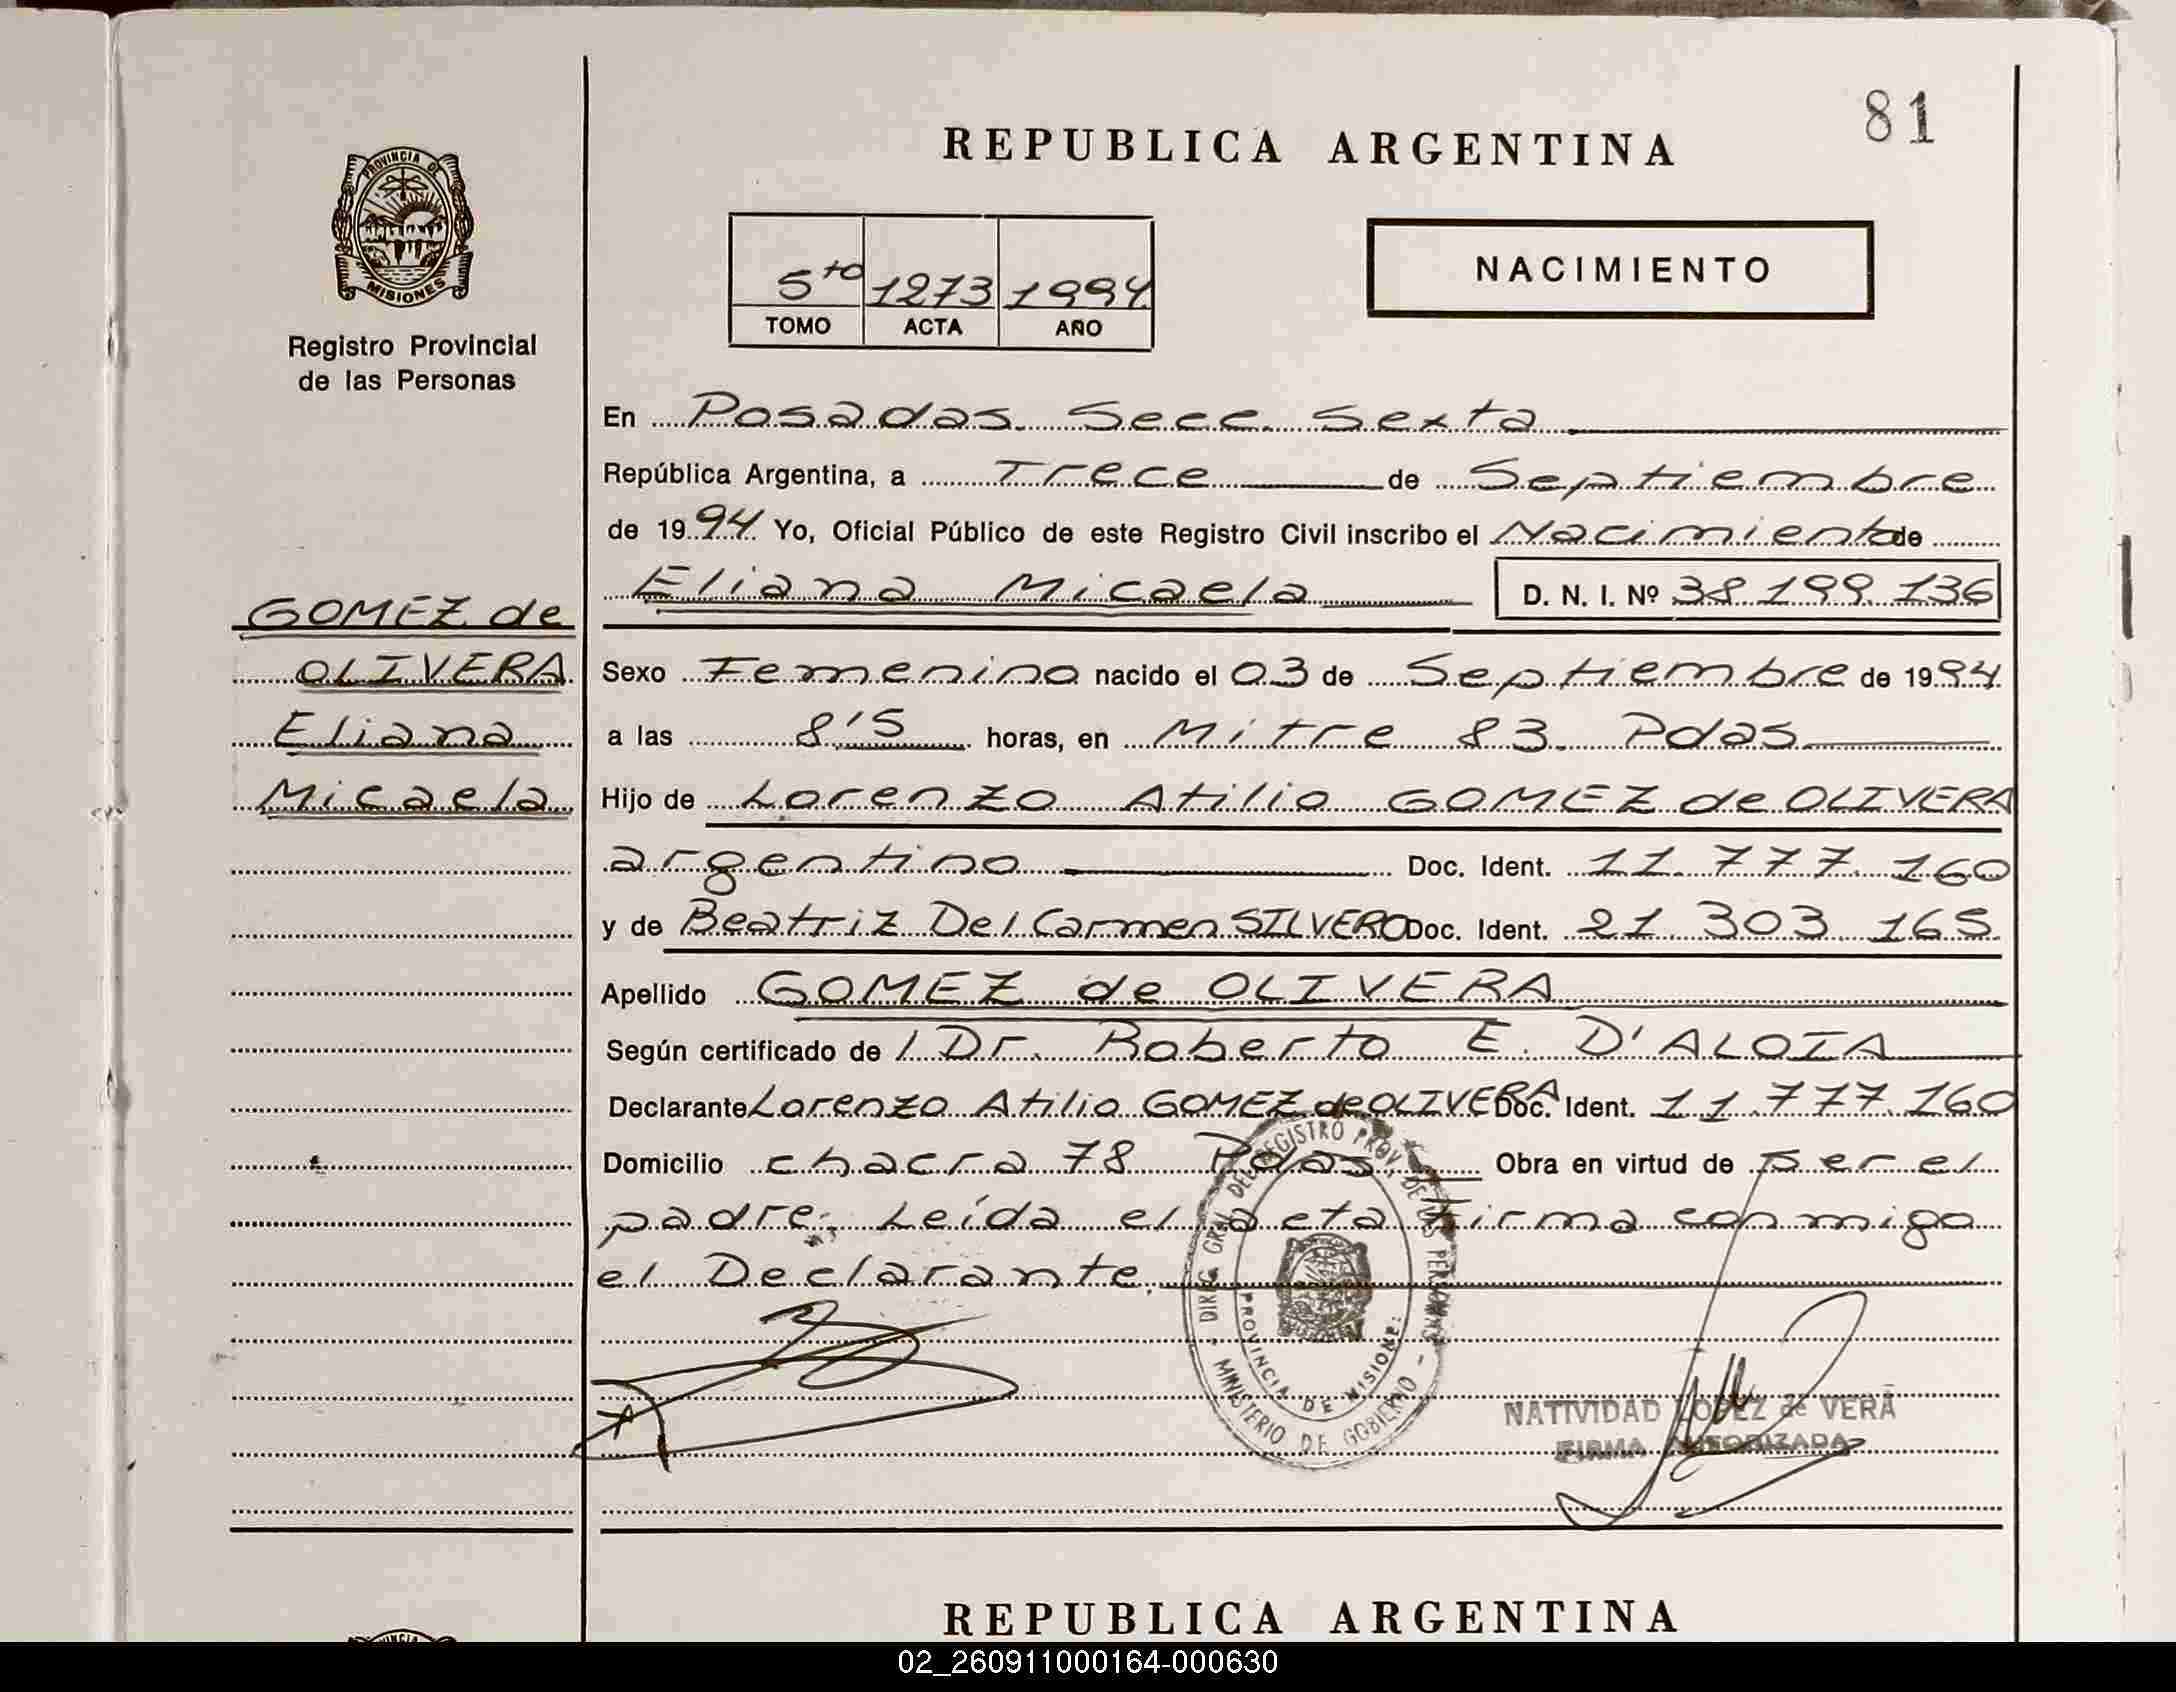 81
REPUBLICA ARGENTINA
PROVINCIA DE
MISIONES
Registro Provincial
de las Personas
5to 1273 1994
TOMO ACTA AÑO
NACIMIENTO
En Posadas Secc. Sexta
República Argentina, a Trece de Septiembre
de 1994 Yo, Oficial Público de este Registro Civil inscribo el Nacimiento de
Eliana Micaela D. N. I. Nº 38.199.136
GOMEZ de
OLIVERA
Eliana
Micaela
Sexo Femenino nacido el 03 de Septiembre de 1994
a las 8'5 horas, en Mitre 83. Pdas
Hijo de Lorenzo Atilio GOMEZ de OLIVERA
argentino Doc. Ident. 11.777.160
y de Beatriz Del Carmen SILVERO Doc. Ident. 21.303.165
Apellido GOMEZ de OLIVERA
Según certificado de l Dr. Roberto E. D'ALOIA
Declarante Lorenzo Atilio GOMEZ de OLIVERA Doc. Ident. 11.777.160
Domicilio chacra 78 Pdas Obra en virtud de ser el
padre. Leída el acta Firma conmigo
el Declarante.
DIREC. GRAL. DEL REGISTRO PROV. DE LAS PERSONAS
PROVINCIA DE MISIONES
MINISTERIO DE GOBIERNO
NATIVIDAD LOPEZ de VERA
FIRMA AUTORIZADA
REPUBLICA ARGENTINA
02_260911000164-000630